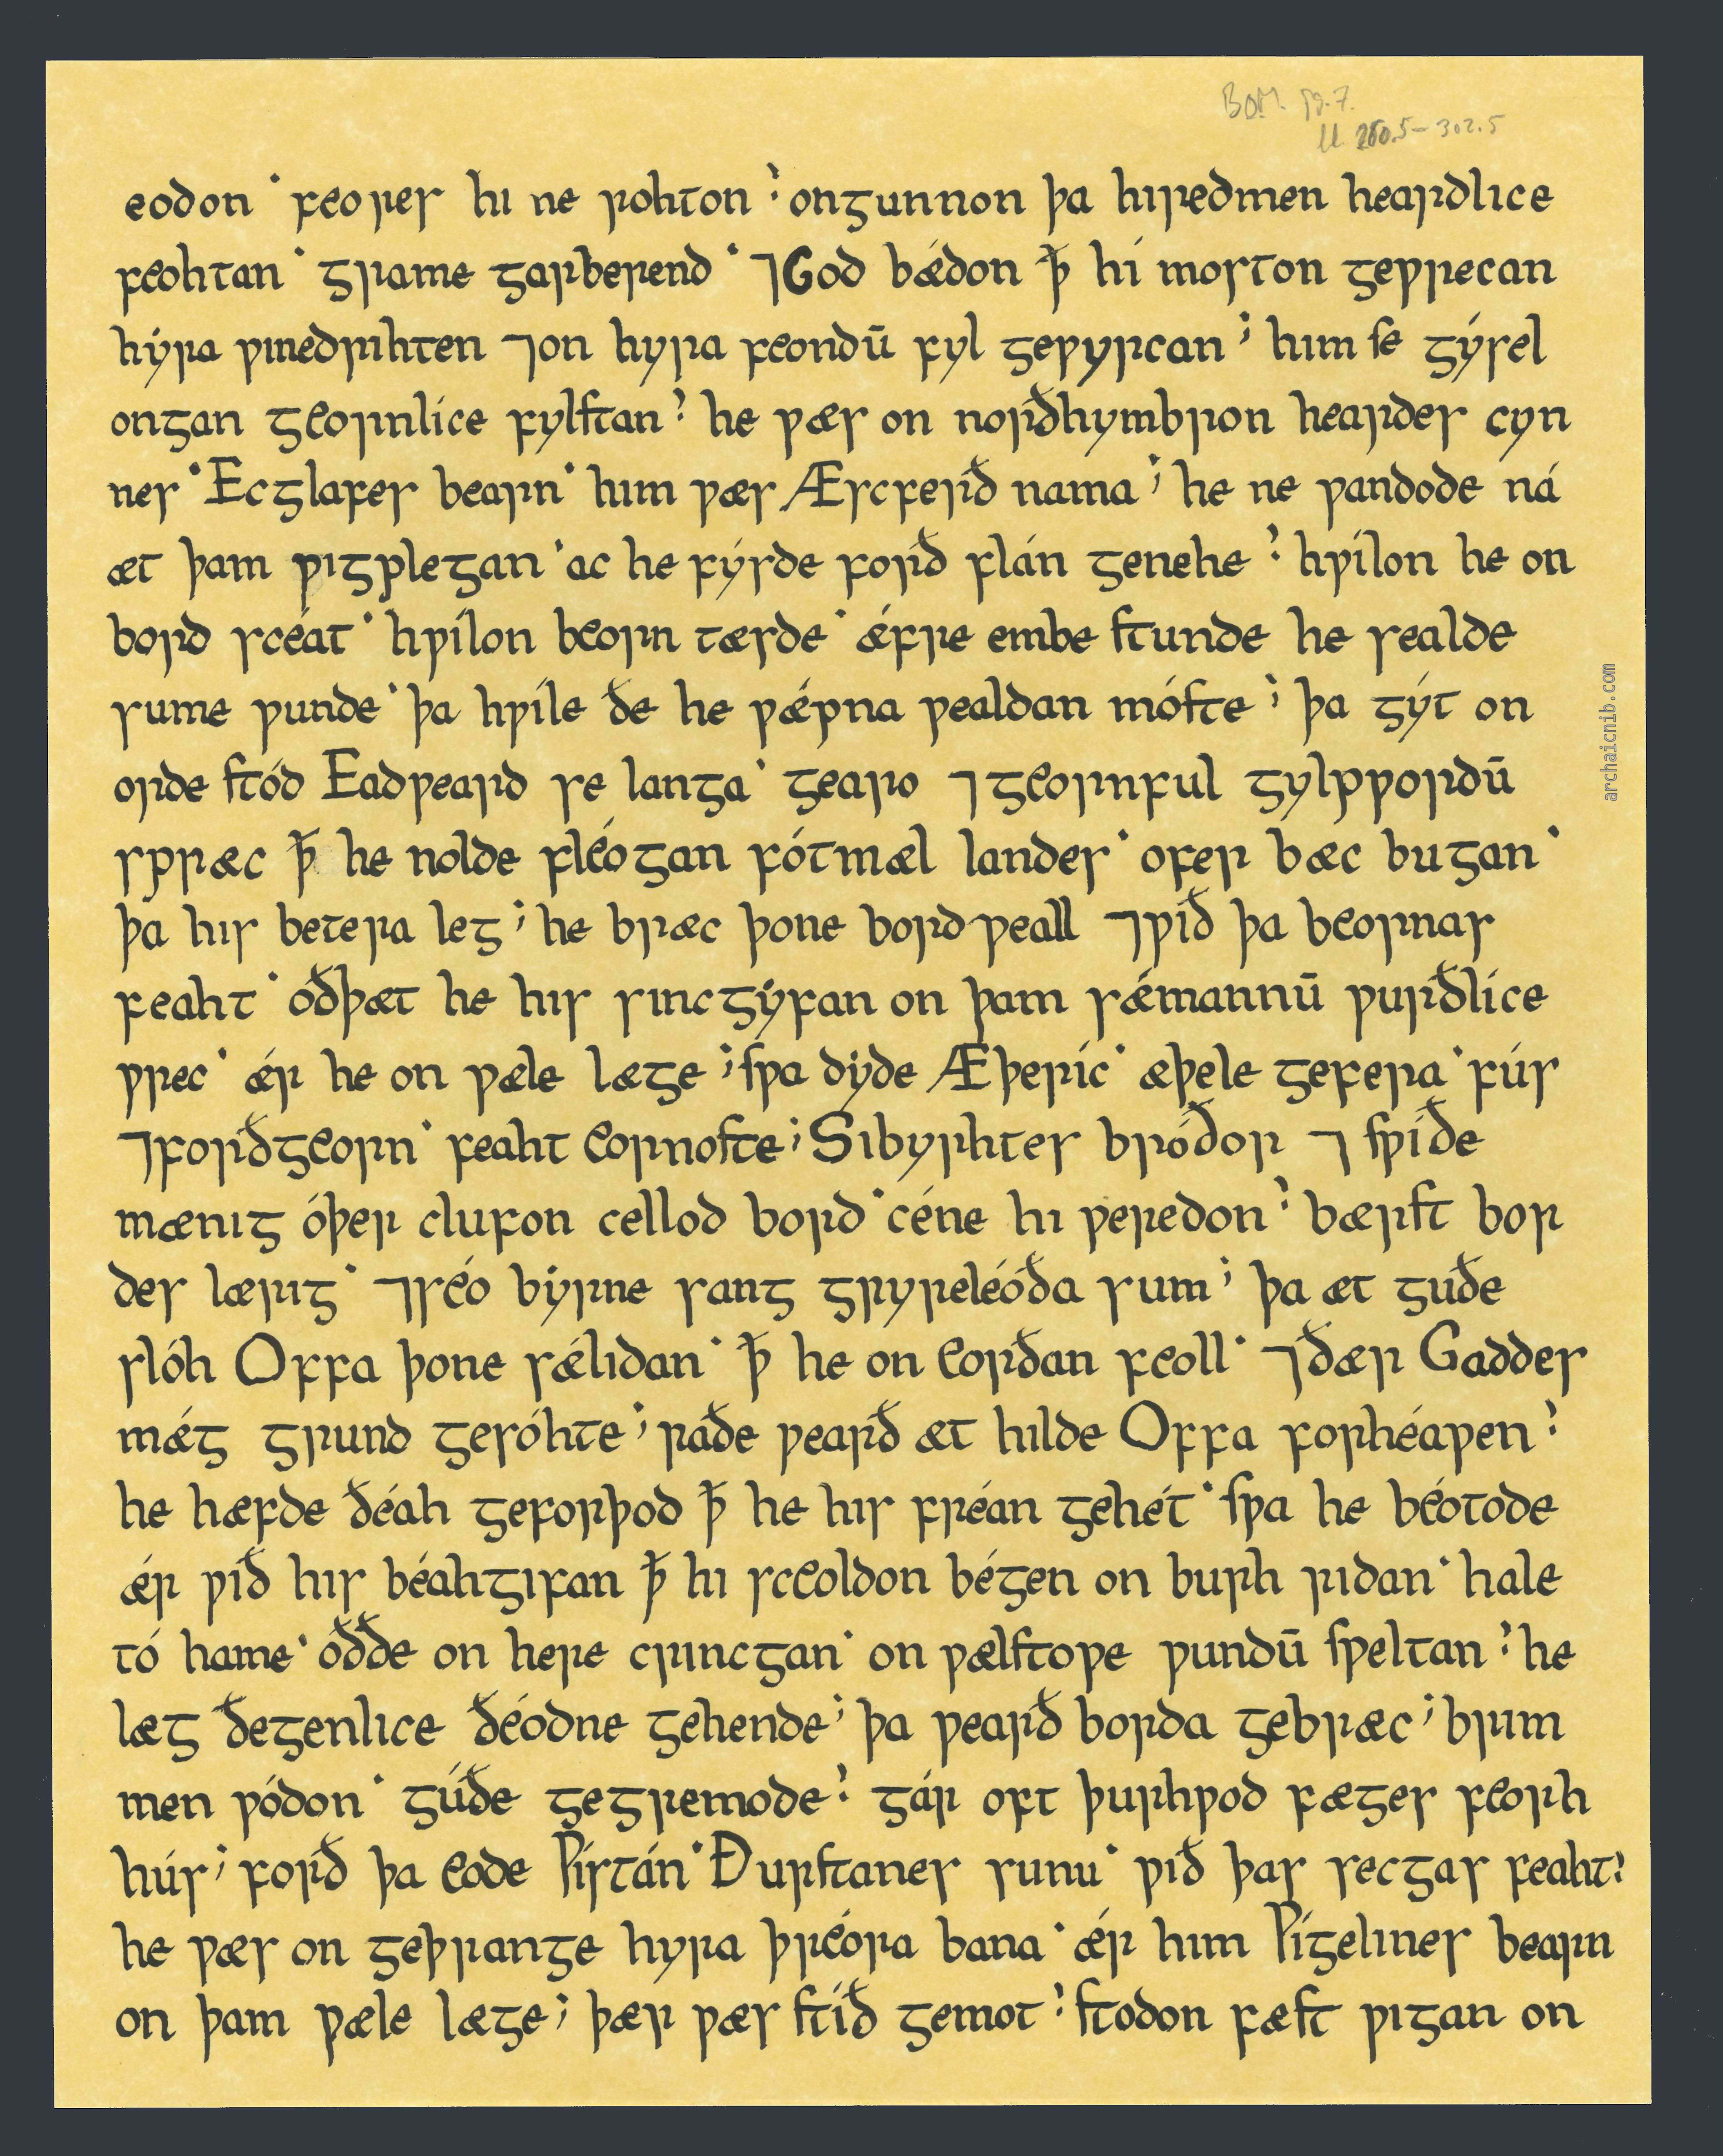 BOM. pg. 7.
ll. 260.5-302.5
eodon · feores hi ne rohton ; ongunnon þa hiredmen heardlice
feohtan · grame garberend · ⁊God bǽdon ꝥ hí moston geƿrecan
hýra ƿinedrihten ⁊on hyra feondū fyl geƿyrcan ; him se gýsel
ongan geornlíce fylstan ; he ƿæs on norðhymbron heardes cyn
nes · Ecglafes bearn · him ƿæs Æscferð nama ; he ne ƿandode ná
æt þam ƿigplegan · ac he fýsde forð flán genehe ; hƿílon he on
bord scéat · hƿílon beorn tæsde · ǽfre embe stunde he sealde
sume ƿunde · þa hƿíle ðe he ƿǽpna ƿealdan móste ; þa gýt on
orde stód Eadƿeard se langa · gearo ⁊geornful gylpƿordū
spræc ꝥ he nolde fléogan fótmæl landes · ofer bæc bugan ·
þa his betera leg ; he bræc þone bordƿeall ⁊ƿið þa beornas
feaht · oðþæt he his sincgyfan on þam sǽmannū ƿurðlíce
ƿrec · ǽr he on ƿæle læge ; sƿa dyde Æþeríc · æþele gefera · fús
⁊forðgeorn · feaht eornoste ; Sibyrhtes bróðor ⁊ sƿíðe
mænig óþer clufon cellod bord · céne hi ƿeredon ; bærst bor
des lærig · ⁊séo býrne sang gryreléóða sum ; þa æt guðe
slóh Offa þone sǽlidan · ꝥ he on eorðan feoll · ⁊ðær Gaddes
mǽg grund gesóhte ; raðe ƿearð æt hilde Offa forhéaƿen ;
he hæfde ðéah geforþod ꝥ he his fréan gehét · sƿa he béotode
ǽr ƿið his béahgifan ꝥ hi sceoldon bégen on burh ridan · hale
tó hame · óððe on here crincgan · on ƿælstoƿe ƿundū sƿeltan ; he
læg ðegenlice ðéodne gehende ; þa ƿearð borda gebræc ; brim
men ƿódon · gúðe gegremode ; gár oft þurhƿod fæges feorh
hús ; forð þa eode Ƿístán · Ðurstanes sunu · ƿið þas secgas feaht ;
he ƿæs on geþrange hyra þréora bana · ǽr him Ƿígelines bearn
on þam ƿæle læge ; þær ƿæs stíð gemot ; stodon fæst ƿigan on
archaicnib.com